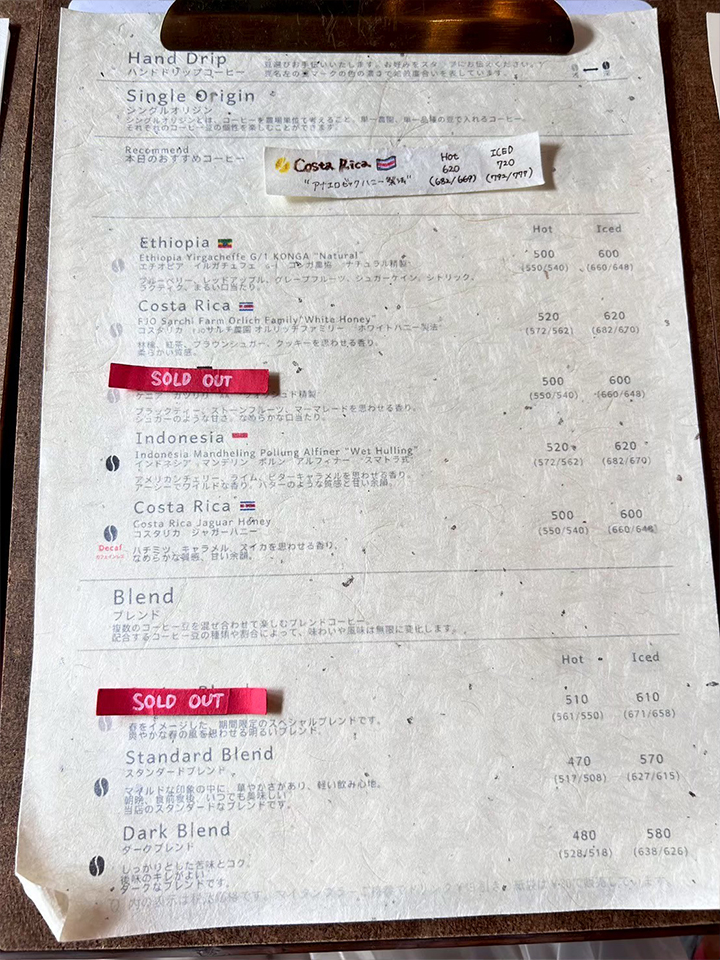 Hand Drip
ハンドドリップコーヒー
Single Origin
シングルオリジン
シングルオリジンとは、コーヒーを農場単位で考えること。単一農園、単一品種の豆で入れるコーヒー。
それぞれのコーヒー豆の個性を楽しむことができます。
Recommend
本日のおすすめコーヒー
Costa Rica Hot ICED
620 720
"アナエロビックハニー製法" (682/669) (792/777)
Hot Iced
Ethiopia
Ethiopia Yirgacheffe G/1 KONGA "Natural" 500 600
エチオピア イルガチェフェ ナチュラル精製 (550/540) (660/648)
レッドアップル、グレープフルーツ、シュガーケイン、シトリック、
まるい口当たり。
Costa Rica
Sarchi Farm Orlich Family "White Honey" 520 620
コスタリカ サルチ農園 オルリッチファミリー ホワイトハニー製法 (572/562) (682/670)
林檎、紅茶、ブラウンシュガー、クッキーを思わせる香り。
柔らかい質感。
SOLD OUT 500 600
(550/540) (660/648)
ブラックティー、ストーンフルーツ、マーマレードを思わせる香り。
シュガーのような甘さ。なめらかな口当たり。
Indonesia
Indonesia Mandheling Pollung Alfiner "Wet Hulling" 520 620
インドネシア マンデリン ポルン アルフィナー スマトラ式 (572/562) (682/670)
アメリカンチェリー、ライム、ビターキャラメルを思わせる香り。
アーシーでワイルドな香り。バターのような質感と甘い余韻。
Costa Rica
Costa Rica Jaguar Honey 500 600
コスタリカ ジャガーハニー (550/540) (660/648)
Decaf ハチミツ、キャラメル、スイカを思わせる香り。
カフェインレス なめらかな質感、甘い余韻。
Blend
ブレンド
複数のコーヒー豆を混ぜ合わせて楽しむブレンドコーヒー。
配合するコーヒー豆の種類や割合によって、味わいや風味は無限に変化します。
Hot Iced
SOLD OUT 510 610
(561/550) (671/658)
春をイメージした、期間限定のスペシャルブレンドです。
爽やかな春の風を思わせる明るいブレンド。
Standard Blend 470 570
スタンダードブレンド (517/508) (627/615)
マイルドな印象の中に、華やかさがあり、軽い飲み心地。
朝晩、食前食後、いつでも美味しい
当店のスタンダードなブレンドです。
Dark Blend 480 580
ダークブレンド (528/518) (638/626)
しっかりとした苦味とコク。
後味のキレがよい
ダークなブレンドです。